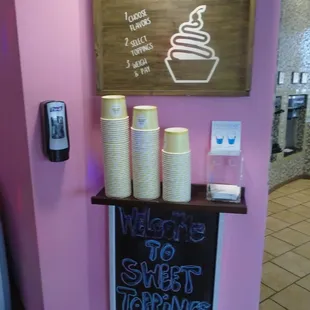 1 CHOOSE
FLAVORS
2 SELECT
TOPPINGS
3 WEIGH
& PAY
Welcome
TO
SWEET
TOPPINGS